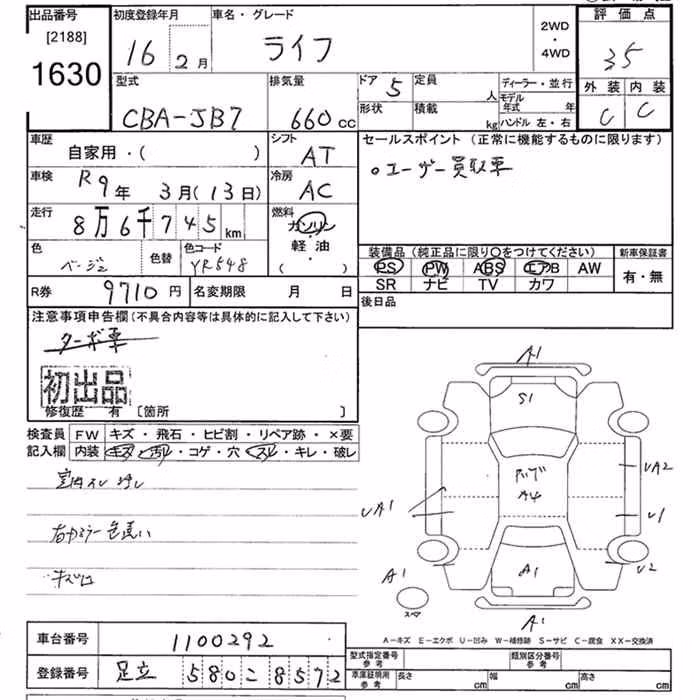 出品番号
[2188]
1630
初度登録年月
16 2月
車名・グレード
ライフ
2WD
・
4WD
評価点
3.5
外装 内装
C C
型式
CBA-JB7
排気量
660cc
ドア 5
形状
定員 人
積載 kg
ディーラー・並行
モデル年式 年
ハンドル 左・右
車歴
自家用・( )
シフト
AT
車検
R9年 3月(13日)
冷房
AC
走行
8万6千745km
燃料
ガソリン
・
軽油
・
( )
色
ベージュ
色替
色コード
YR548
R券 9710円
名変期限 月 日
セールスポイント (正常に機能するものに限ります)
○ユーザー買取車
装備品 (純正品に限り○をつけてください)
PS PW ABS エアB AW
SR ナビ TV カワ
新車保証書
有・無
後日品
注意事項申告欄(不具合内容等は具体的に記入して下さい)
ターボ車
初出品
修復歴 有 [箇所 ]
検査員記入欄
FW キズ・飛石・ヒビ割・リペア跡・×要
内装 キズ・汚レ・コゲ・穴・スレ・キレ・破レ
右ドアミラー色違い
A1
S1
ルーフ
A4
UA2
UA1
U1
U2
A1
A1
スペア
A1
A-キズ E-エクボ U-凹み W-補修跡 S-サビ C-腐食 XX-交換済
車台番号 1100292
登録番号 足立 580 こ 8572
型式指定番号
参考
類別区分番号
参考
車庫証明用
参考
長さ cm 幅 cm 高さ cm